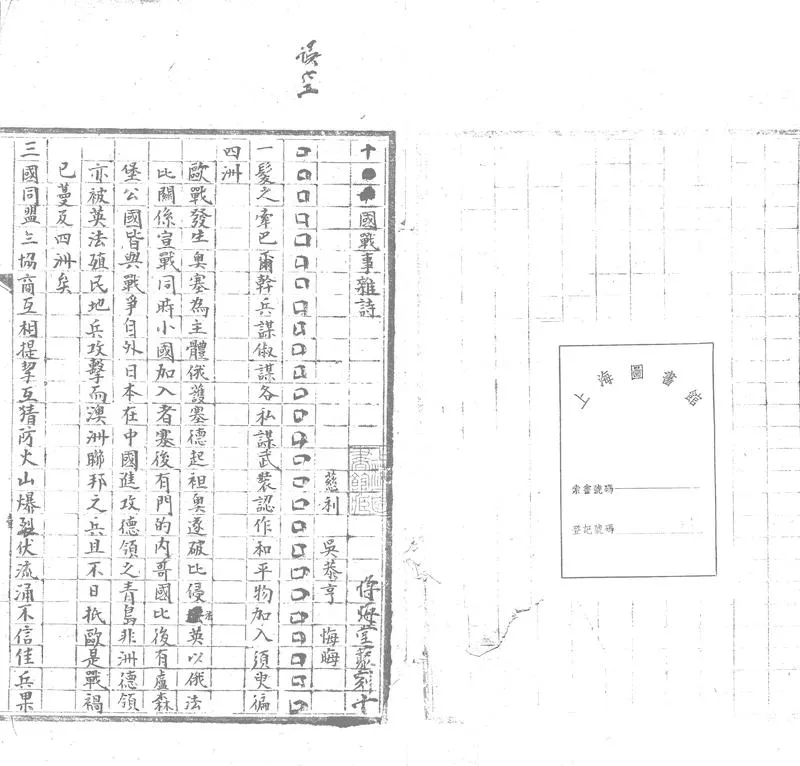 上海圖書館
索書號碼
登記號碼
國戰事雜詩
慈利 吳恭亨 悔晦
堂叢刻十
口口口口口口口口口口口口口口口口口口口口口口口口口
一髮之牽巴爾幹兵謀俶謀各私謀武裝認作和平物加入須臾徧
四洲
歐戰發生奧塞為主體俄護塞德起袒奧遂破比侵法英以俄法
比關係宣戰同時小國加入者塞後有門的內哥國比後有盧森
堡公國皆與戰爭自外日本在中國進攻德領之青島非洲德領
亦被英法殖民地兵攻擊而澳洲聯邦之兵且不日抵歐是戰禍
已蔓及四洲矣
三國同盟三協商互相提挈互猜防火山爆裂伏流涌不信佳兵果